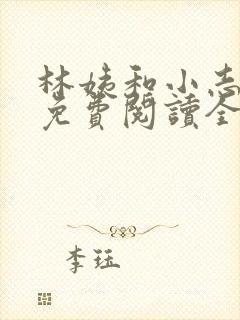 林姨和小志
免費閱讀全
李珏